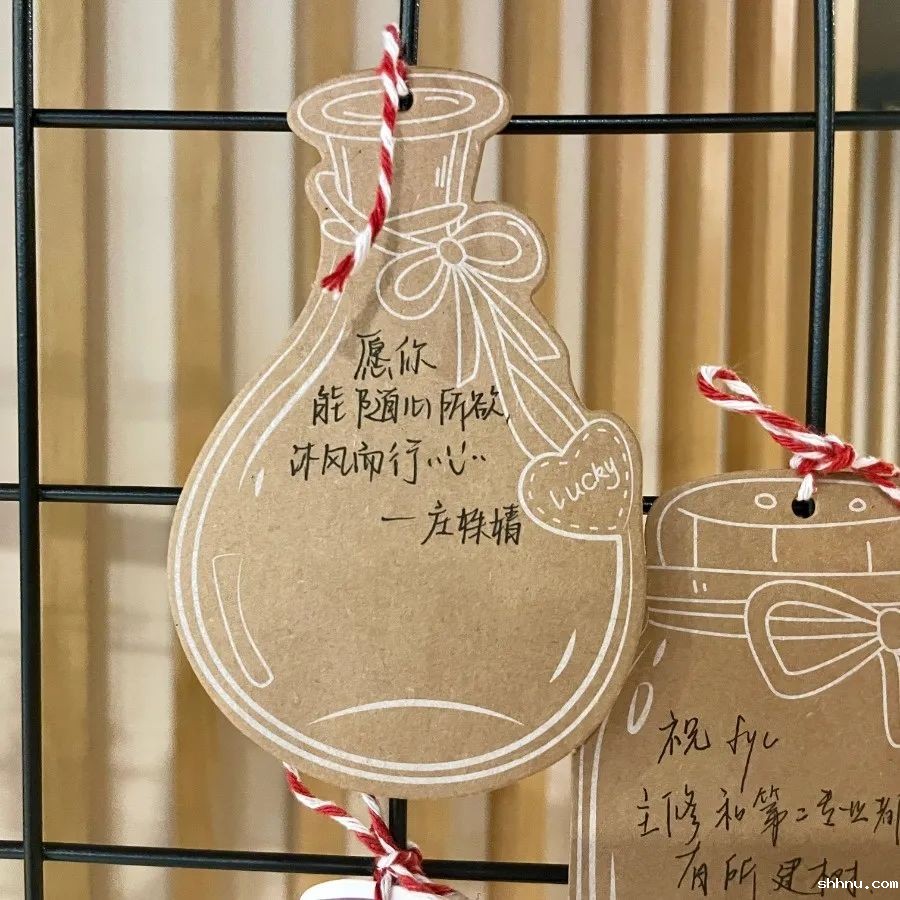 愿你
能随心所欲,
沐风而行
一庄姝婧
lucky
祝 fyc
主修和第二专业都
有所建树.
shhnu.com